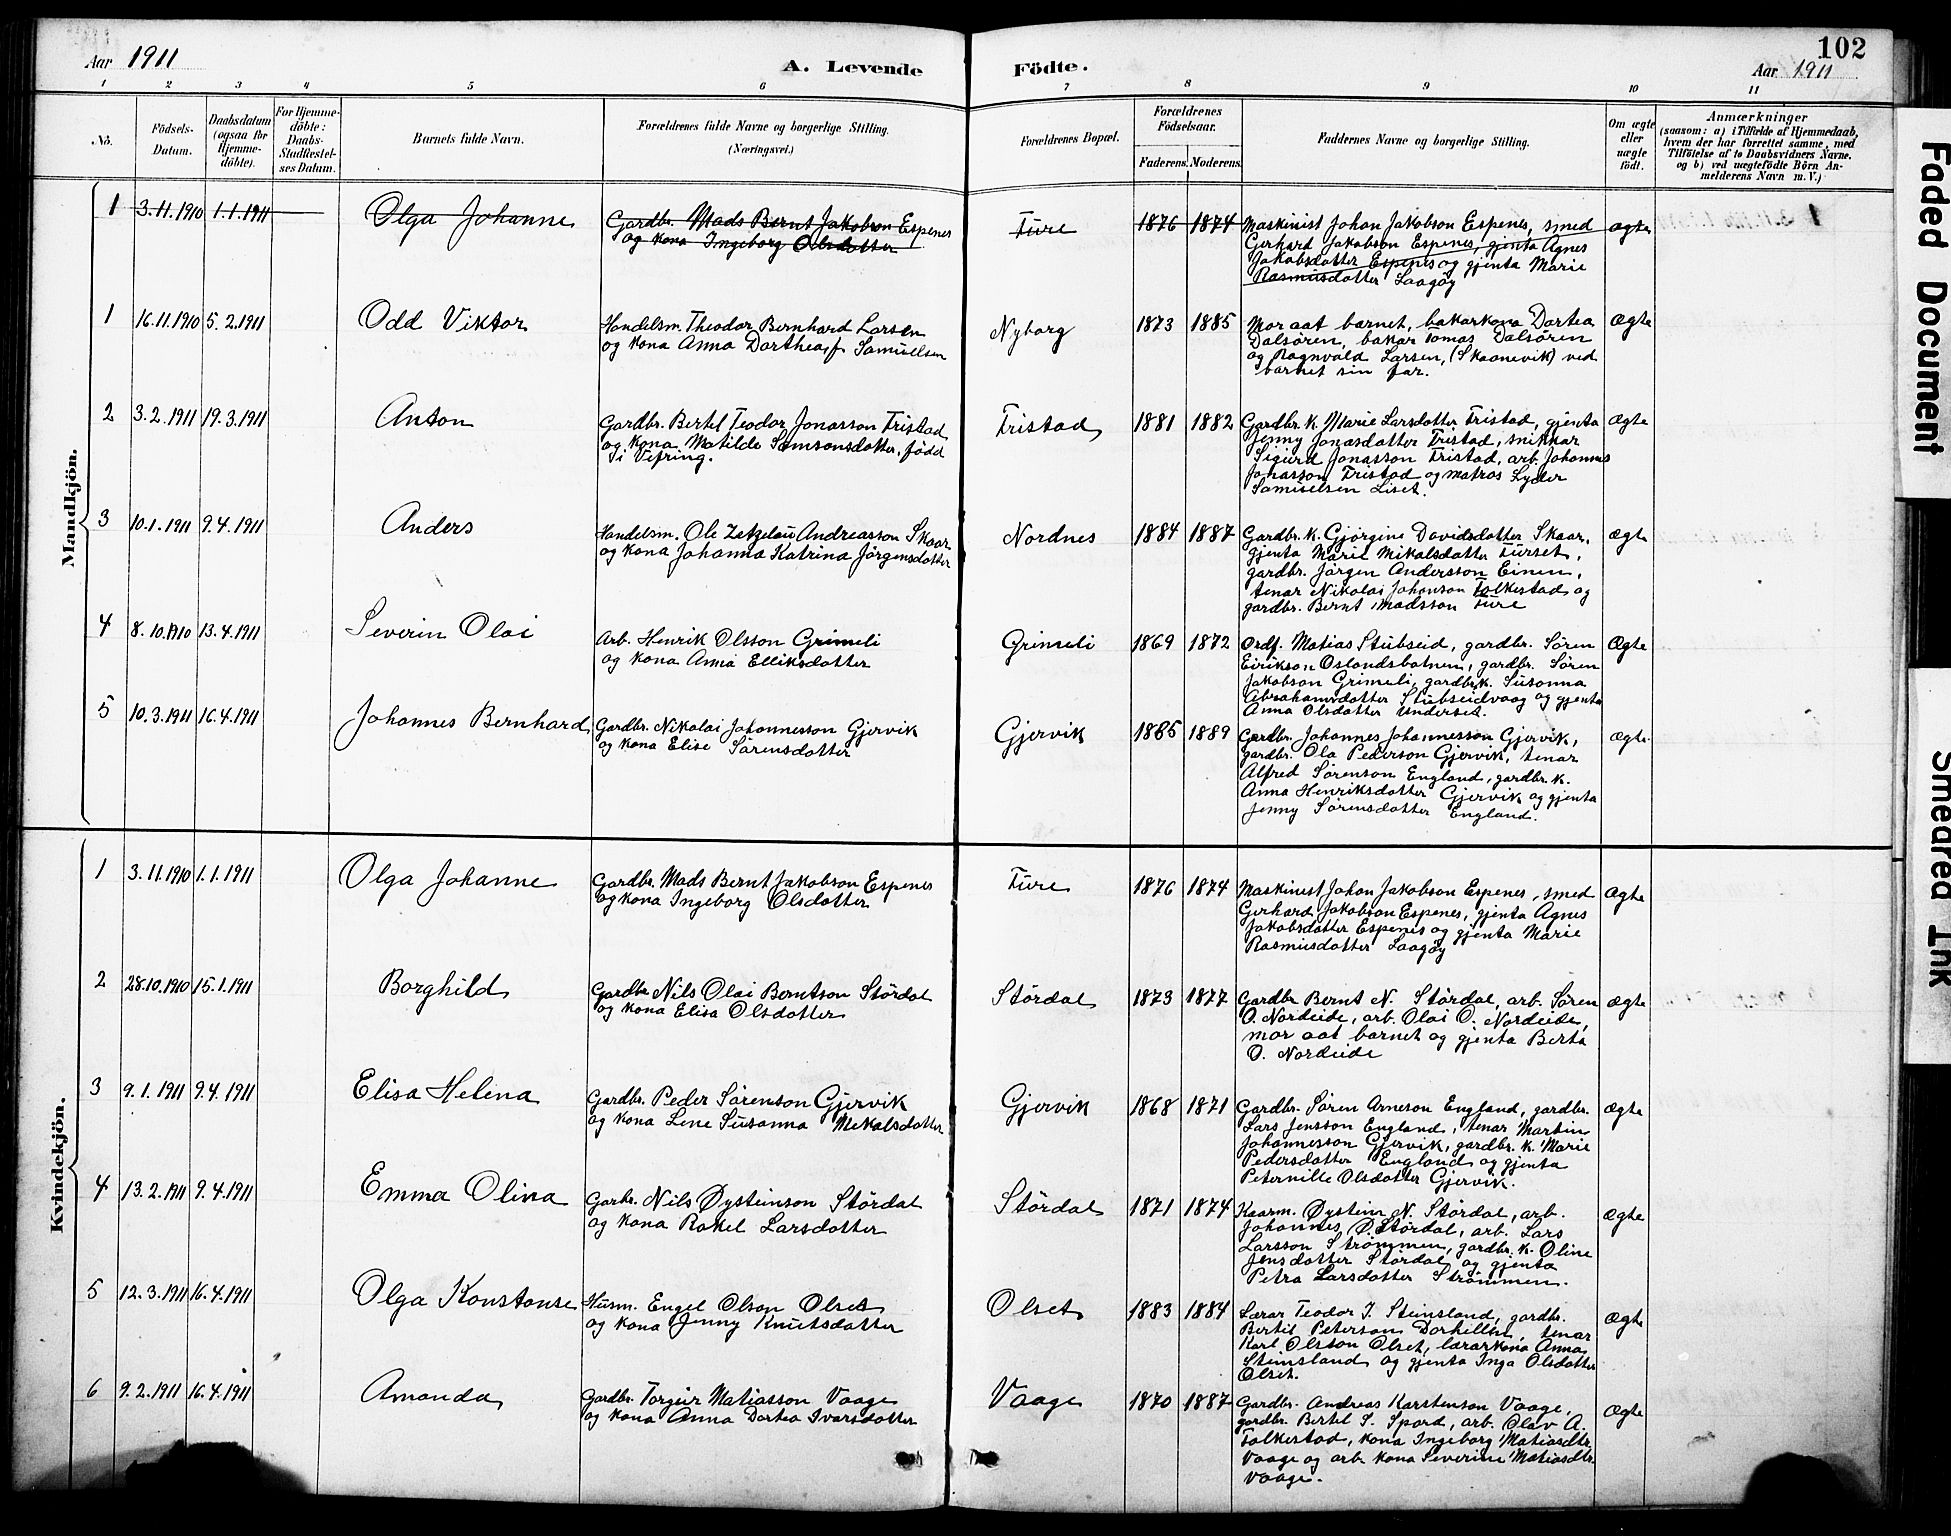 102
Aar 1911
A. Levende Födte.
Aar 1911
1 2 3 4 5 6 7 8 9 10 11
No.
Födsels-Datum.
Daabsdatum (ogsaa for Hjemme-döbte).
For Hjemme-döbte: Daabs-Stadfæstel-ses Datum.
Barnets fulde Navn.
Forældrenes fulde Navne og borgerlige Stilling.
(Næringsvei.)
Forældrenes Bopæl.
Forældrenes Födselsaar.
Faderens. Moderens.
Faddernes Navne og borgerlige Stilling.
Om ægte eller uægte födt.
Anmærkninger
(saasom: a) i Tilfælde af Hjemmedaab,
hvem der har forrettet samme, med
Tilföielse af to Daabsvidners Navne,
og b) ved uægtefödte Börn An-
melderens Navn m. V.)
Mandkjön.
1 3.11.1910 1.1.1911 Olga Johanne
Gardbr. Mads Bernt Jakobson Espenes
og kona Ingeborg Olsdotter
Ture 1876 1874
Maskinist Johan Jakobson Espenes, smed
Gerhard Jakobson Espenes, gjenta Agnes
Jakobsdotter Espenes og gjenta Marie
Rasmusdotter Laagøy
ægte
1 16.11.1910 5.2.1911 Odd Viktor
Handelsm. Theodor Bernhard Larsen
og kona Anna Dorthea, f. Samuelsen
Nyborg 1873 1885
Mor aat barnet, bakarkona Dortea
Dalsøren, bakar Tomas Dalsøren
og Ragnvald Larsen, (Skaanevik) ved
barnet sin far.
Ægte
2 3.2.1911 19.3.1911 Anton
Gardbr. Bertel Teodor Jonasson Tristad
og kona Matilde Samsonsdotter, født
i Vefring.
Tristad 1881 1882
Gardbr. k. Marie Larsdotter Tristad, gjenta
Jenny Jonasdotter Tristad, snikkar
Sigurd Jonasson Tristad, arb. Johannes
Jonasson Tristad og matros Lyder
Samuelsen Liset.
Ægte
3 10.1.1911 9.4.1911 Anders
Handelsm. Ole Zetzelau Andreasson Skaar
og kona Johanna Katrina Jørgensdotter
Nordnes 1884 1887
Gardbr. k. Gjørgine Davidsdotter Skaar,
gjenta Marie Mikalsdotter Furset,
gardbr. Jørgen Andersson Einen,
tenar Nikolai Johanson Folkestad og
gardbr. Bernt Madsson Ture
ægte
4 8.10.1910 13.4.1911 Severin Olai
Arb. Henrik Olsson Grimeli
og kona Anna Elliksdotter
Grimeli 1869 1872
Ordf. Matias Stubseid, gardbr. Søren
Eirikson Oslandsbotnen, gardbr. Søren
Jakobson Grimeli, gardbr.k. Susanna
Abrahamsdotter Stubseidvaag og gjenta
Anna Olsdotter Underset.
Ægte
5 10.3.1911 16.4.1911 Johannes Bernhard
Gardbr. Nikolai Johannesson Gjervik
og kona Elise Sørensdotter
Gjervik 1885 1889
Gardbr. Johannes Johannesson Gjervik,
gardbr. Ola Pederson Gjervik, tenar
Alfred Sørenson England, gardbr. k.
Anna Henriksdotter Gjervik og gjenta
Jenny Sørensdotter England.
ægte
Kvindekjön.
1 3.11.1910 1.1.1911 Olga Johanne
Gardbr. Mads Bernt Jakobson Espenes
og kona Ingeborg Olsdotter
Ture 1876 1874
Maskinist Johan Jakobson Espenes, smed
Gerhard Jakobson Espenes, gjenta Agnes
Jakobsdotter Espenes og gjenta Marie
Rasmusdotter Laagøy
Ægte
2 28.10.1910 15.1.1911 Borghild
Gardbr. Nils Olai Berntson Størdal
og kona Elisa Olsdotter
Størdal 1873 1877
Gardbr. Bernt N. Størdal, arb. Søren
O. Nordeide, arb. Olai O. Nordeide,
mor aat barnet og gjenta Berta
O. Nordeide
ægte
3 9.1.1911 9.4.1911 Elisa Helena
Gardbr. Peder Sørenson Gjervik
og kona Lene Susanna Mikalsdotter
Gjervik 1868 1871
Gardbr. Søren Arneson England, gardbr.
Lars Jensson England, tenar Martin
Johannesson Gjervik, gardbr. k. Marie
Pedersdotter England og gjenta
Peternille Olsdotter Gjervik.
ægte
4 13.2.1911 9.4.1911 Emma Olina
Garbr. Nils Øysteinson Størdal
og kona Rakel Larsdotter
Størdal 1871 1874
Kaarm. Øystein N. Størdal, arb.
Johannes Ø. Størdal, arb. Lars
Larsson Strømmen, gardbr. k. Oline
Jensdotter Størdal og gjenta
Petra Larsdotter Strømmen.
Ægte
5 12.3.1911 16.4.1911 Olga Konstanse
Husm. Engel Olson Olset
og kona Jenny Knutsdotter
Olset 1883 1884
Lærar Teodor J. Steinsland, gardbr.
Bertil Peterson Dorhellen, tenar
Karl Olsson Olset, lærarkona Anna
Steinsland og gjenta Inga Olsdotter
Olset.
ægte
6 9.2.1911 16.4.1911 Amanda
Gardbr. Torgeir Matiasson Vaage
og kona Anna Dortea Ivarsdotter
Vaage 1870 1887
Gardbr. Andreas Karstenson Vaage,
gardbr. Bertel S. Spord, arb. Olav A.
Folkestad, kona Ingeborg Matiasdtr.
Vaage og arb. kona Severine Matiasdtr.
Vaage.
ægte
Faded Document
Smeared Ink